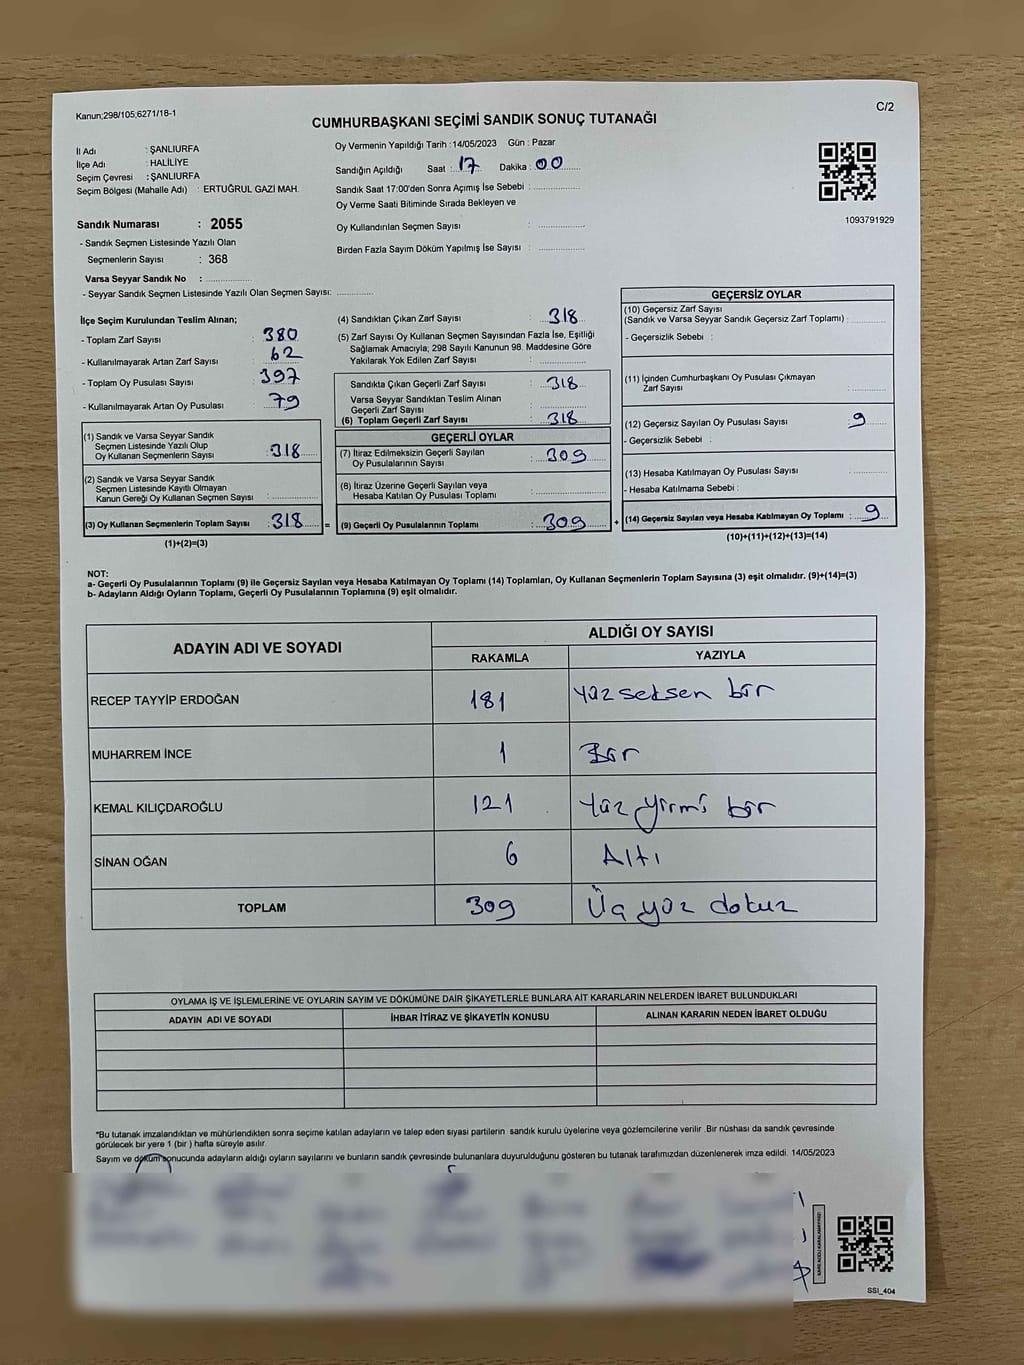 Kanun;298/105;6271/18-1
C/2
CUMHURBAŞKANI SEÇİMİ SANDIK SONUÇ TUTANAĞI
İl Adı : ŞANLIURFA
İlçe Adı : HALİLİYE
Seçim Çevresi : ŞANLIURFA
Seçim Bölgesi (Mahalle Adı) : ERTUĞRUL GAZİ MAH.
Oy Vermenin Yapıldığı Tarih :14/05/2023 Gün : Pazar
Sandığın Açıldığı Saat : 17 Dakika : 00
Sandık Saat 17:00'den Sonra Açımış İse Sebebi :
Oy Verme Saati Bitiminde Sırada Bekleyen ve
Oy Kullandırılan Seçmen Sayısı :
Birden Fazla Sayım Döküm Yapılmış İse Sayısı :
1093791929
Sandık Numarası : 2055
- Sandık Seçmen Listesinde Yazılı Olan
Seçmenlerin Sayısı : 368
Varsa Seyyar Sandık No :
- Seyyar Sandık Seçmen Listesinde Yazılı Olan Seçmen Sayısı:
İlçe Seçim Kurulundan Teslim Alınan;
- Toplam Zarf Sayısı : 380
- Kullanılmayarak Artan Zarf Sayısı : 62
- Toplam Oy Pusulası Sayısı : 397
- Kullanılmayarak Artan Oy Pusulası : 79
(1) Sandık ve Varsa Seyyar Sandık
Seçmen Listesinde Yazılı Olup
Oy Kullanan Seçmenlerin Sayısı : 318
(2) Sandık ve Varsa Seyyar Sandık
Seçmen Listesinde Kayıtlı Olmayan
Kanun Gereği Oy Kullanan Seçmen Sayısı :
(3) Oy Kullanan Seçmenlerin Toplam Sayısı : 318 =
(1)+(2)=(3)
(4) Sandıktan Çıkan Zarf Sayısı : 318
(5) Zarf Sayısı Oy Kullanan Seçmen Sayısından Fazla İse, Eşitliği
Sağlamak Amacıyla; 298 Sayılı Kanunun 98. Maddesine Göre
Yakılarak Yok Edilen Zarf Sayısı :
Sandıkta Çıkan Geçerli Zarf Sayısı : 318
Varsa Seyyar Sandıktan Teslim Alınan
Geçerli Zarf Sayısı :
(6) Toplam Geçerli Zarf Sayısı : 318
GEÇERLİ OYLAR
(7) İtiraz Edilmeksizin Geçerli Sayılan
Oy Pusulalarının Sayısı : 309
(8) İtiraz Üzerine Geçerli Sayılan veya
Hesaba Katılan Oy Pusulası Toplamı :
(9) Geçerli Oy Pusulalarının Toplamı : 309 +
GEÇERSİZ OYLAR
(10) Geçersiz Zarf Sayısı
(Sandık ve Varsa Seyyar Sandık Geçersiz Zarf Toplamı) :
- Geçersizlik Sebebi :
(11) İçinden Cumhurbaşkanı Oy Pusulası Çıkmayan
Zarf Sayısı :
(12) Geçersiz Sayılan Oy Pusulası Sayısı : 9
- Geçersizlik Sebebi :
(13) Hesaba Katılmayan Oy Pusulası Sayısı :
- Hesaba Katılmama Sebebi :
(14) Geçersiz Sayılan veya Hesaba Katılmayan Oy Toplamı : 9
(10)+(11)+(12)+(13)=(14)
NOT:
a- Geçerli Oy Pusulalarının Toplamı (9) ile Geçersiz Sayılan veya Hesaba Katılmayan Oy Toplamı (14) Toplamları, Oy Kullanan Seçmenlerin Toplam Sayısına (3) eşit olmalıdır. (9)+(14)=(3)
b- Adayların Aldığı Oyların Toplamı, Geçerli Oy Pusulalarının Toplamına (9) eşit olmalıdır.
ADAYIN ADI VE SOYADI
ALDIĞI OY SAYISI
RAKAMLA YAZIYLA
RECEP TAYYİP ERDOĞAN 181 Yüz seksen bir
MUHARREM İNCE 1 Bir
KEMAL KILIÇDAROĞLU 121 Yüz yirmi bir
SİNAN OĞAN 6 Altı
TOPLAM 309 Üç yüz dokuz
OYLAMA İŞ VE İŞLEMLERİNE VE OYLARIN SAYIM VE DÖKÜMÜNE DAİR ŞİKAYETLERLE BUNLARA AİT KARARLARIN NELERDEN İBARET BULUNDUKLARI
ADAYIN ADI VE SOYADI İHBAR İTİRAZ VE ŞİKAYETİN KONUSU ALINAN KARARIN NEDEN İBARET OLDUĞU
*Bu tutanak imzalandıktan ve mühürlendikten sonra seçime katılan adayların ve talep eden siyasi partilerin sandık kurulu üyelerine veya gözlemcilerine verilir .Bir nüshası da sandık çevresinde
görülecek bir yere 1 (bir ) hafta süreyle asılır.
Sayım ve döküm sonucunda adayların aldığı oyların sayılarını ve bunların sandık çevresinde bulunanlara duyurulduğunu gösteren bu tutanak tarafımızdan düzenlenerek imza edildi. 14/05/2023
SSI_404